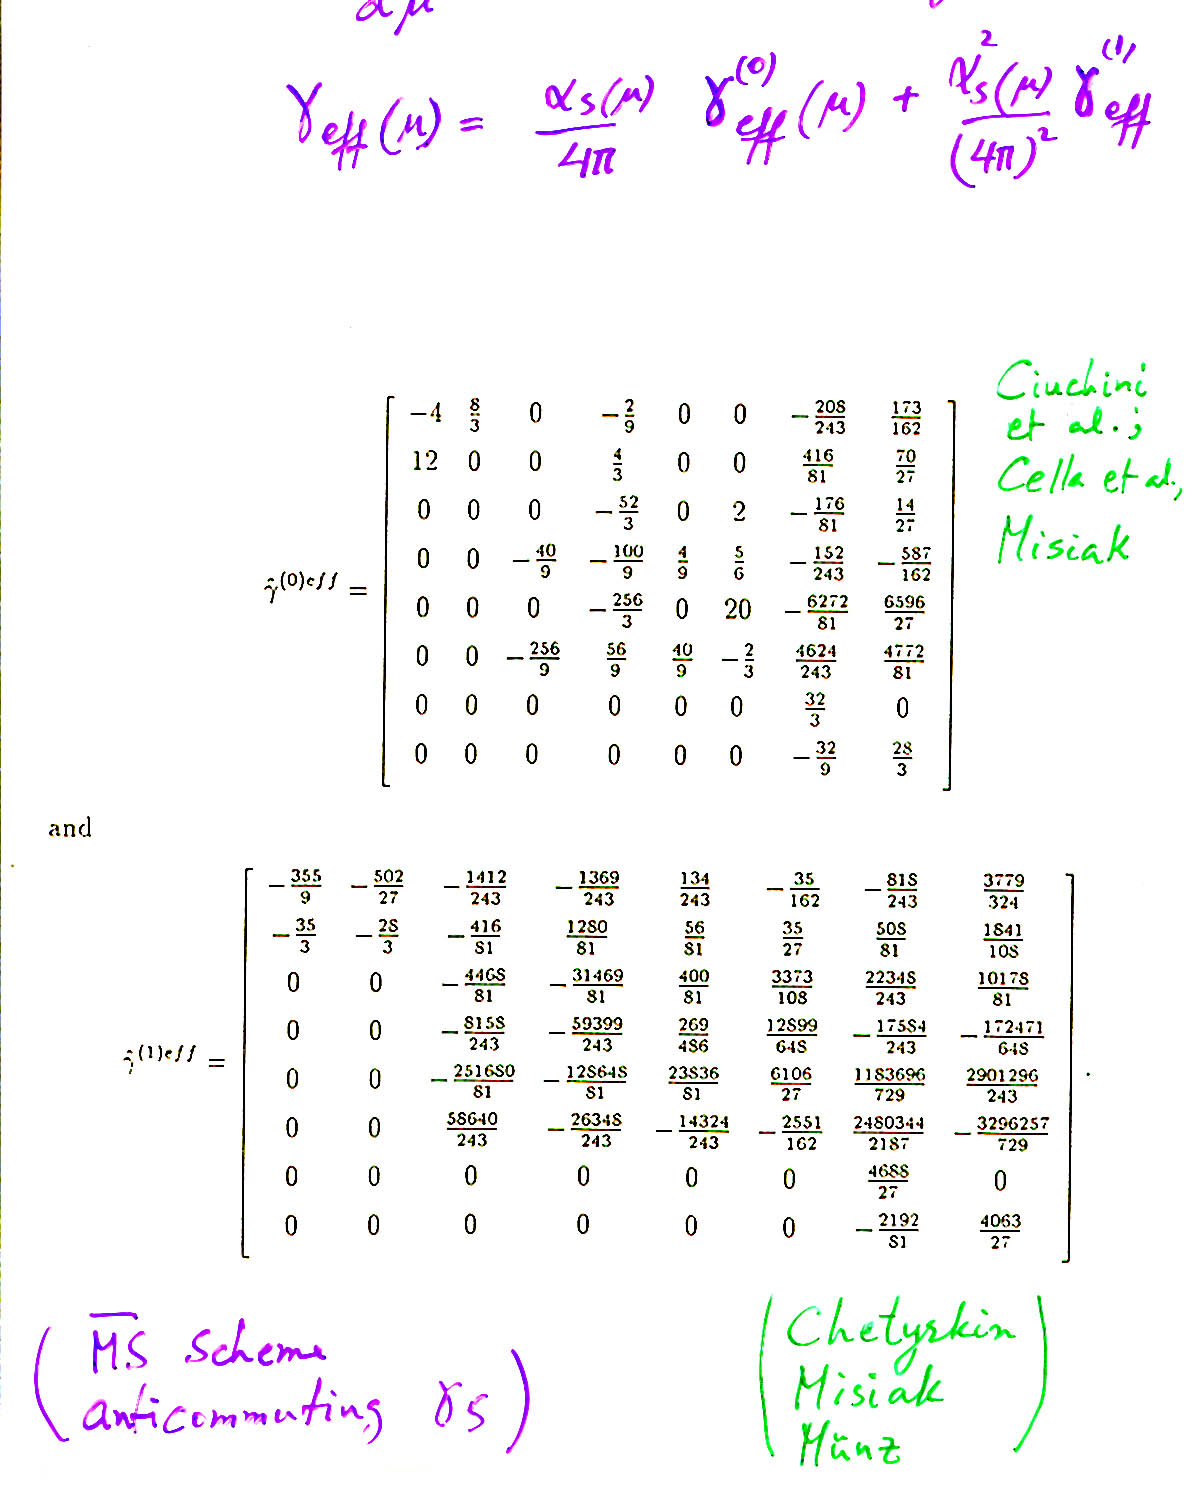 dμ
γeff(μ) = αs(μ)/4π γ(0)eff(μ) + αs²(μ)/(4π)² γ(1)eff
Ciuchini
et al.;
Cella et al.,
Misiak
γ̂(0)eff =
-4 8/3 0 -2/9 0 0 -208/243 173/162
12 0 0 4/3 0 0 416/81 70/27
0 0 0 -52/3 0 2 -176/81 14/27
0 0 -40/9 -100/9 4/9 5/6 -152/243 -587/162
0 0 0 -256/3 0 20 -6272/81 6596/27
0 0 -256/9 56/9 40/9 -2/3 4624/243 4772/81
0 0 0 0 0 0 32/3 0
0 0 0 0 0 0 -32/9 28/3
and
γ̂(1)eff =
-355/9 -502/27 -1412/243 -1369/243 134/243 -35/162 -818/243 3779/324
-35/3 -28/3 -416/81 1280/81 56/81 35/27 508/81 1841/108
0 0 -4468/81 -31469/81 400/81 3373/108 22348/243 10178/81
0 0 -8158/243 -59399/243 269/486 12899/648 -17584/243 -172471/648
0 0 -251680/81 -128648/81 23836/81 6106/27 1183696/729 2901296/243
0 0 58640/243 -26348/243 -14324/243 -2551/162 2480344/2187 -3296257/729
0 0 0 0 0 0 4688/27 0
0 0 0 0 0 0 -2192/81 4063/27
.
(M̅S̅ Scheme
anticommuting γ5)
(Chetyrkin
Misiak
Münz)